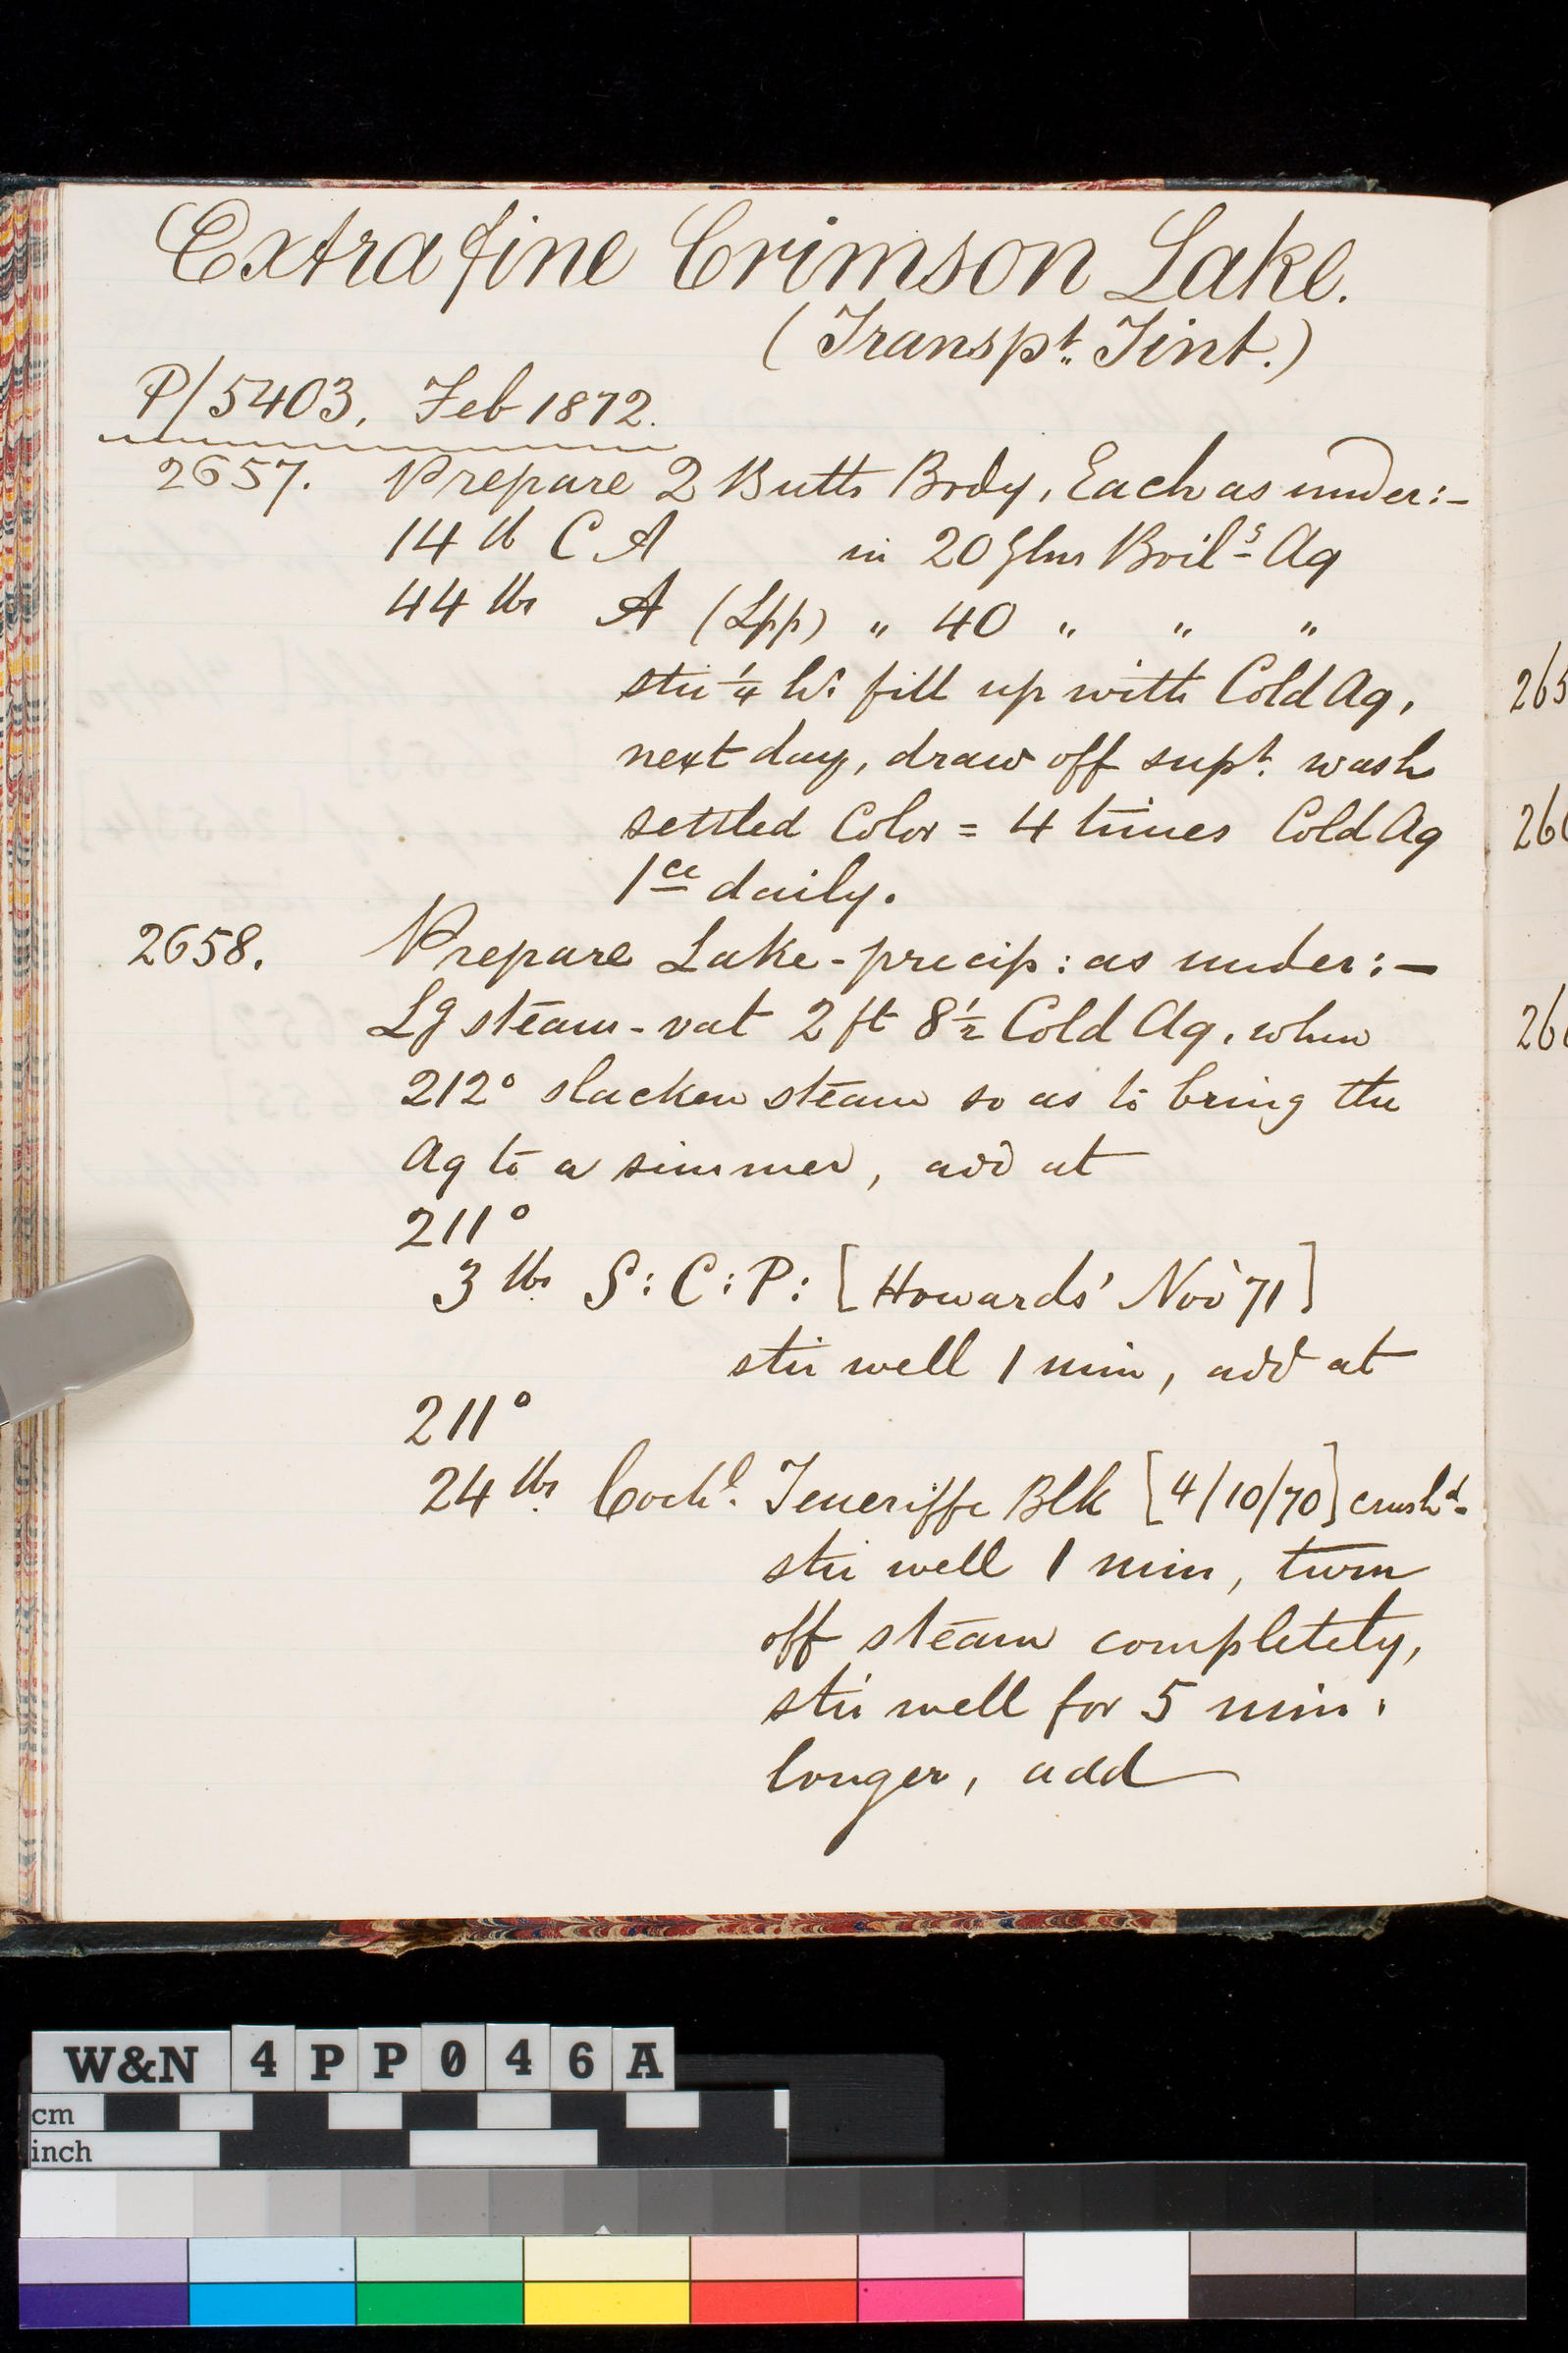 Extra fine Crimson Lake.
(Transpt. Tint.)
P/5403, Feb 1872.
2657. Prepare 2 Butts Body, Each as under:-
14 lb C A in 20 Glns Boilg Aq
44 lbs A (Lpp) " 40 " " "
stir 1/4 hr: fill up with Cold Aq,
next day, draw off supt. wash
settled Color = 4 times Cold Aq
1ce daily.
2658. Prepare Lake-precip: as under:-
Lg steam-vat 2 ft 8 1/2 Cold Aq, when
212° slacken steam so as to bring the
Aq to a simmer, add at
211°
3 lbs S: C: P: [Howards' Nov '71]
stir well 1 min, add at
211°
24 lbs Cochl. Teneriffe Blk [4/10/70] crushd.
stir well 1 min, turn
off steam completely,
stir well for 5 min.
longer, add
265
26
26
W&N 4PP046A
cm
inch